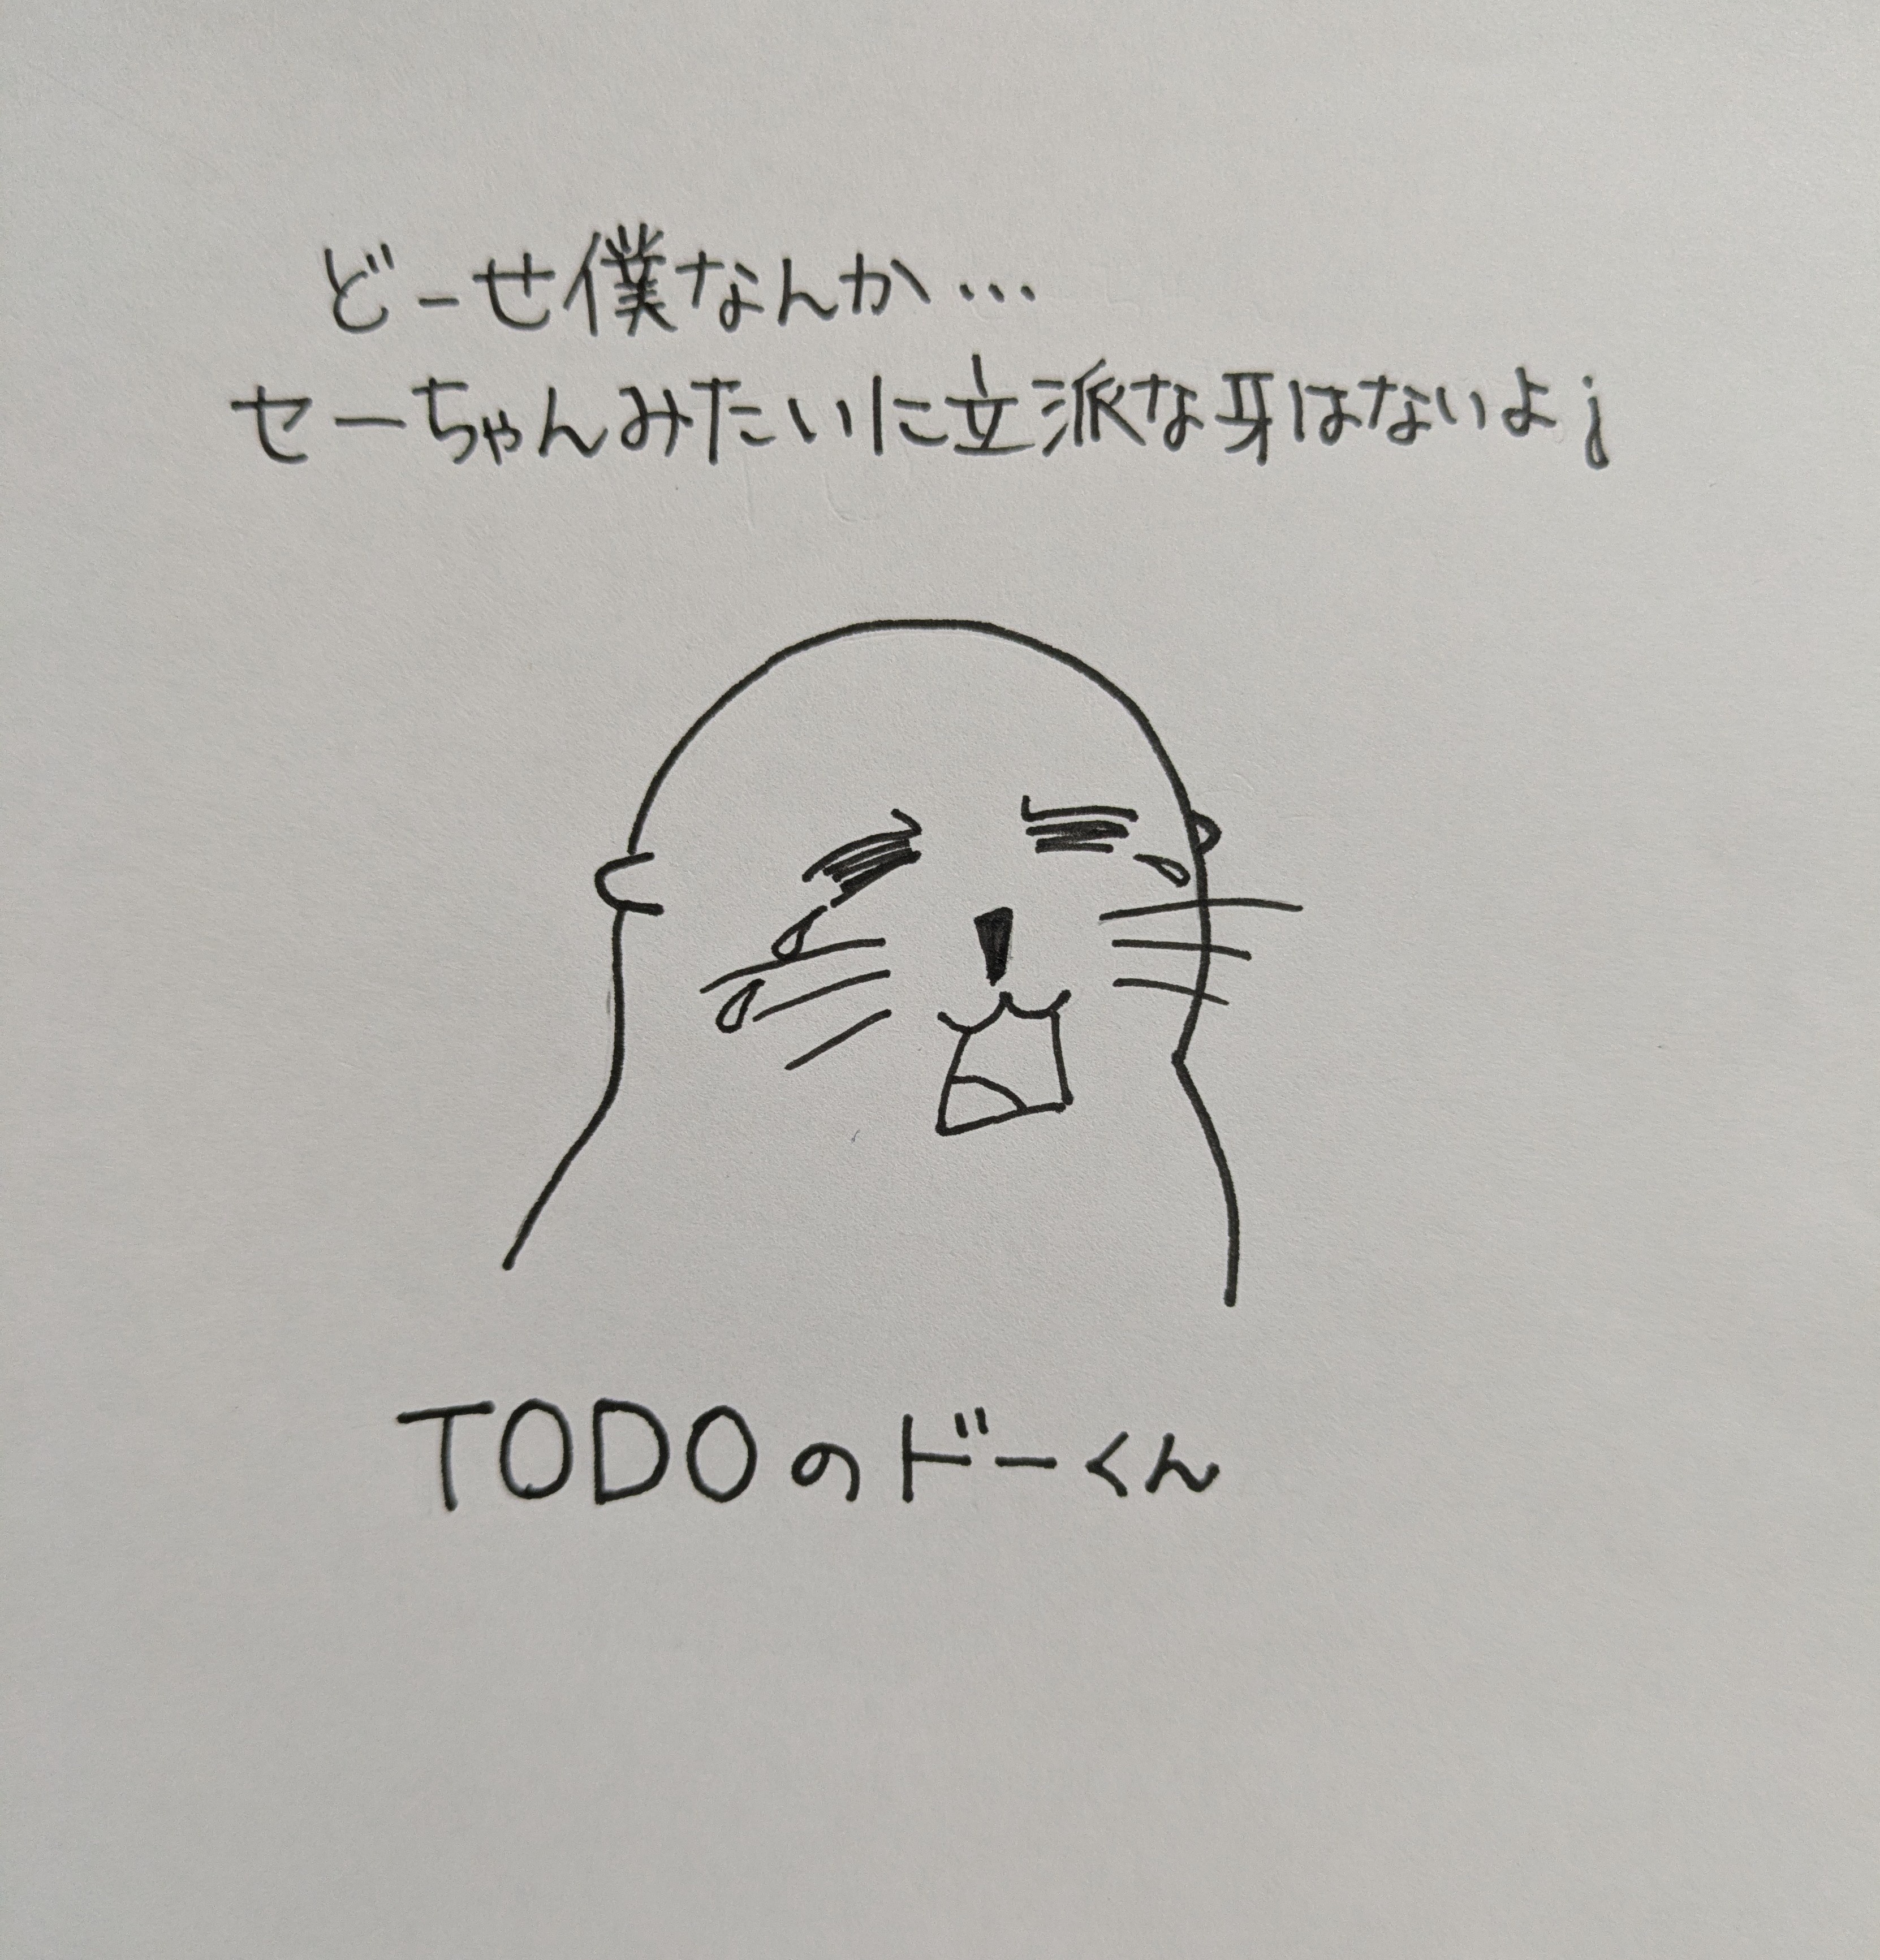 どーせ僕なんか…
セーちゃんみたいに立派な牙はないよ
TODOのドーくん